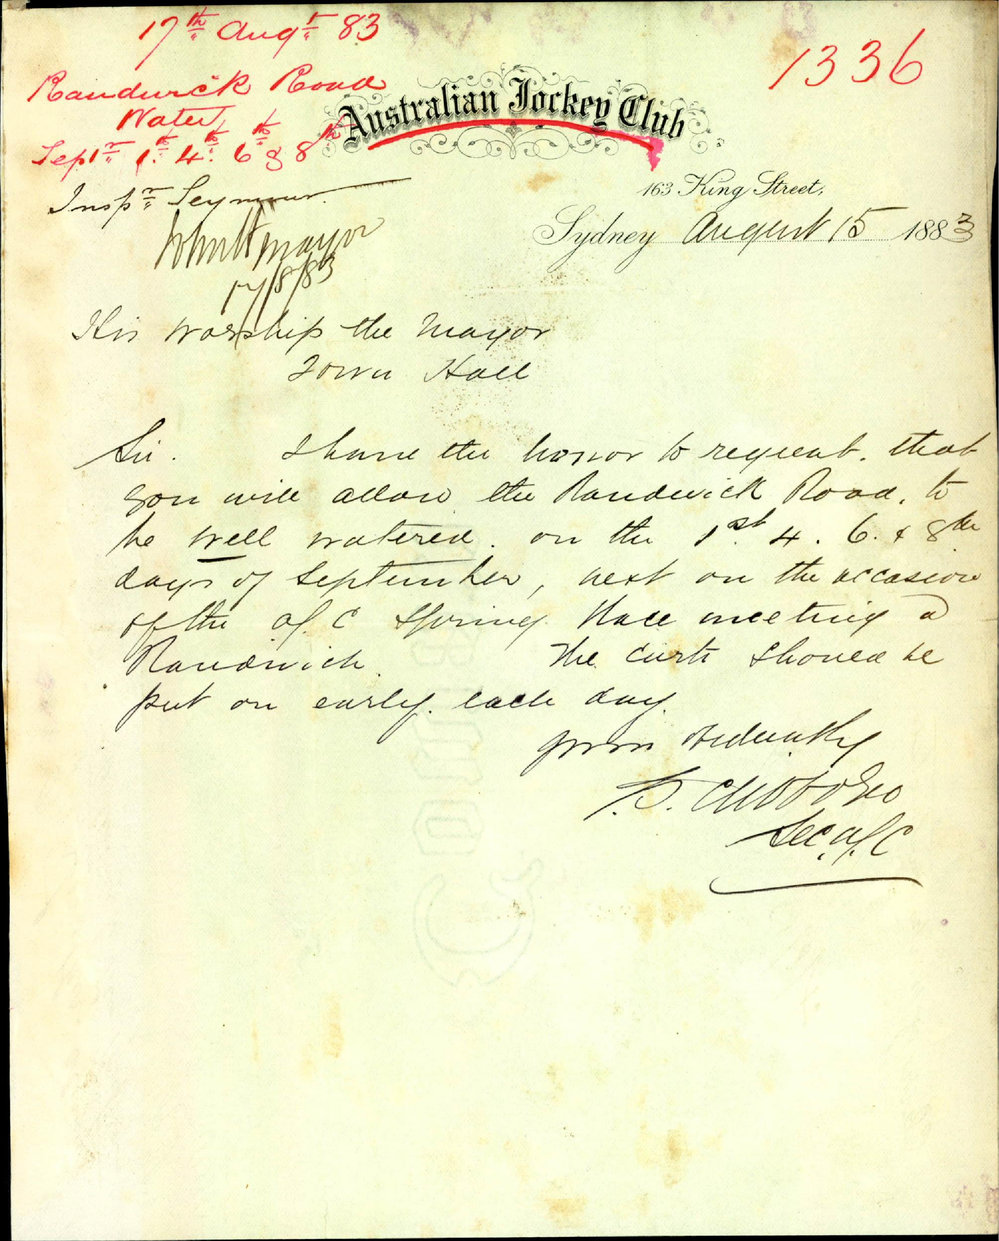 17th Augt 83
1336
Randwick Road
Water
Septr 1st 4th 6th & 8th
Australian Jockey Club
Inspr Seymour.
163 King Street,
Sydney August 15 1883
Mayor
17/8/83
His Worship the Mayor
Town Hall
Sir. I have the honor to request. that
you will allow the Randwick Road. to
be well watered. on the 1st. 4. 6. & 8th
days of September, next on the occasion
of the A. J. C Spring Race meeting a
Randwick The carts should be
put on early. each day.
Yours Obediently
T. S. Clibborn
Sec. A. J. C